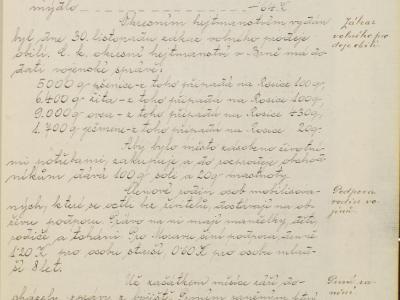 mýdlo — 64 K
Okresním hejtmanstvím vydán
byl dne 30. listopadu zákaz volného prodeje
obilí. C. k. okresní hejtmanství v Brně má do-
dati vojenské správě:
5000 q pšenice - z toho připadá na Rosice 100 q,
6.400 q žita - z toho připadá na Rosice 100 q,
9.000 q ovsa - z toho připadá na Rosice 430 q,
1.700 q ječmene - z toho připadá na Rosice 20 q.
Aby bylo město zásobeno životní-
mi potřebami, zakupuje a do rozprodeje obchod-
níkům dává 100 q soli a 20 q mastnoty.
Členové rodin osob mobilisova-
ných, které se octly bez živitelů, dostávají na ob-
živu podporu. Právo na ni mají manželky, děti,
rodiče a tcháni. Pro Moravu činí podpora denně
1·20 K pro osobu starší, 0·60 K pro osobu mlad-
ší 8 let.
Už začátkem měsíce září do-
cházely zprávy z bojiště. Prvním raněným, který
Zákaz
volného pro-
deje obilí.
Podpora
rodin vo-
jínů.
První ra-
nění.